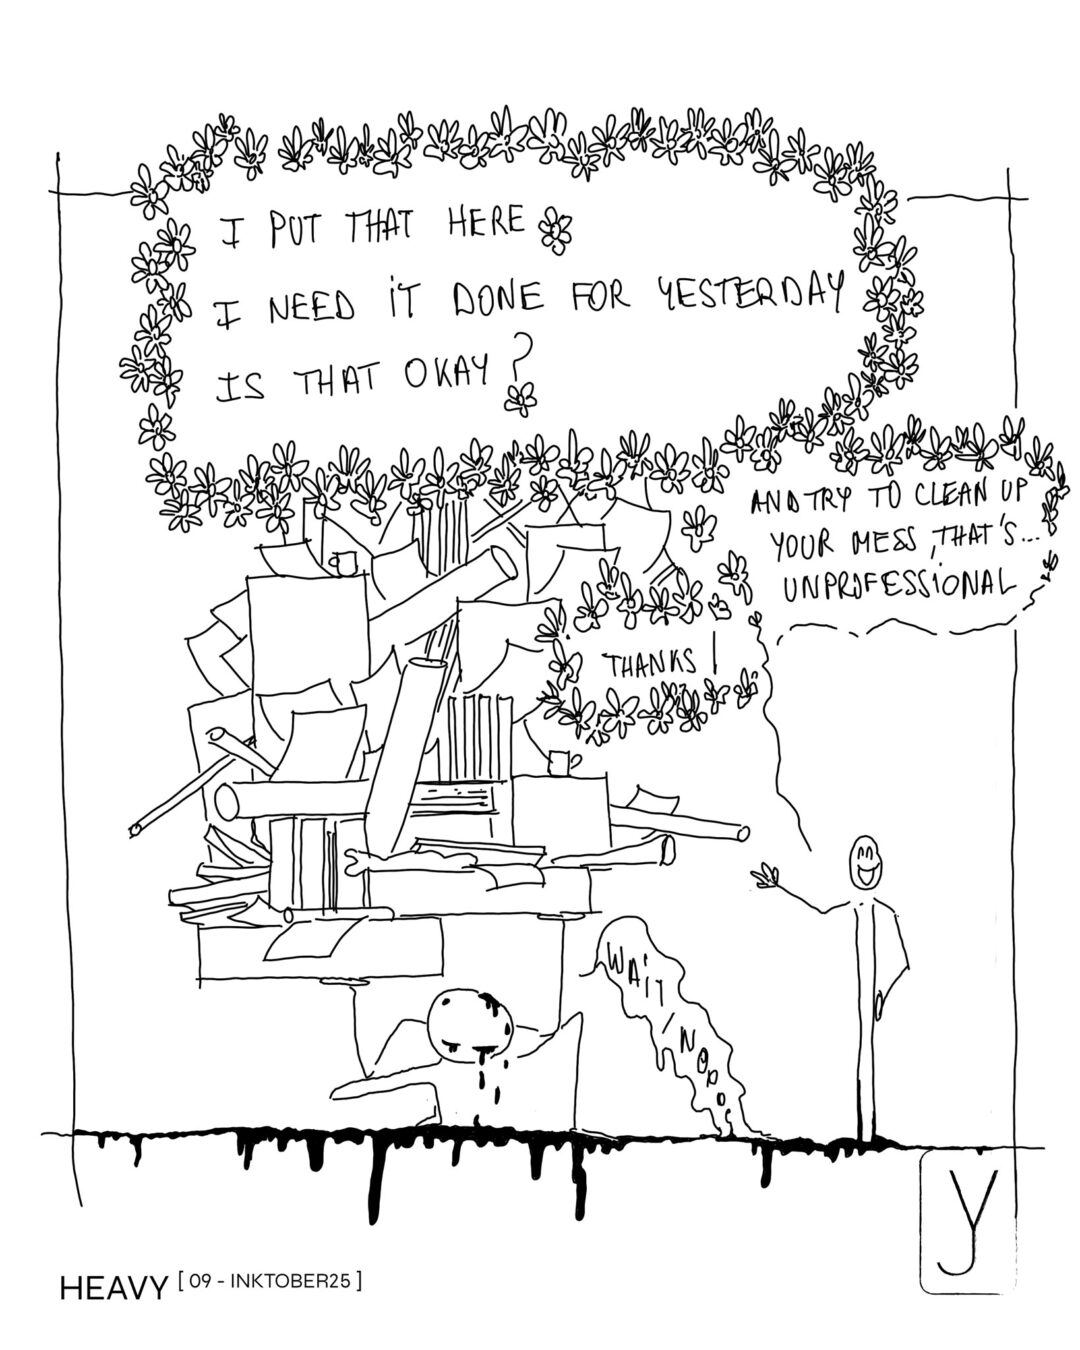 I PUT THAT HERE
I NEED IT DONE FOR YESTERDAY
IS THAT OKAY?
AND TRY TO CLEAN UP
YOUR MESS, THAT'S...
UNPROFESSIONAL
THANKS!
WAIT, NOOOO
HEAVY [ 09 - INKTOBER25 ]
y